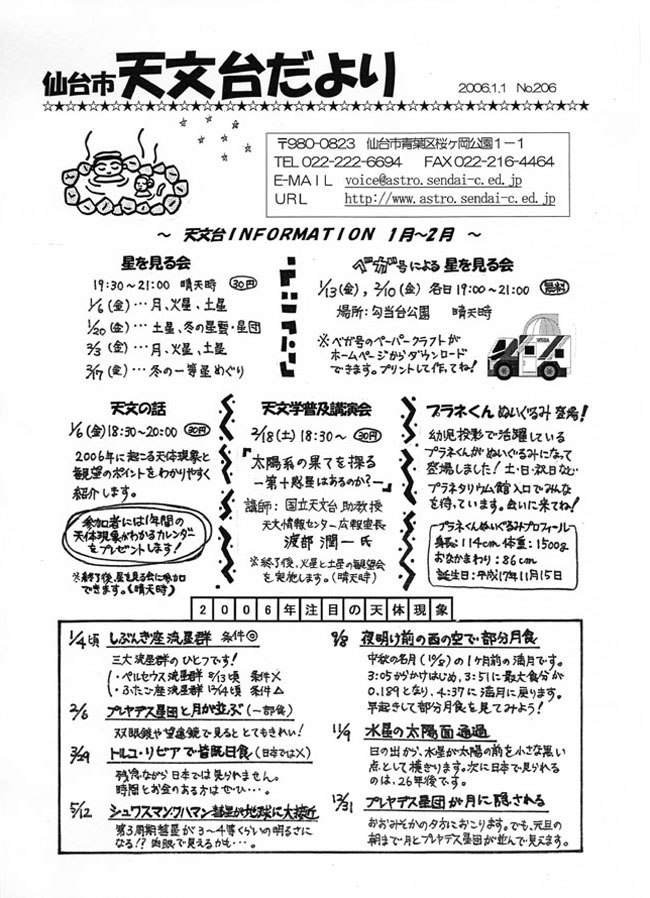 仙台市 天文台だより 2006.1.1 No.206
〒980-0823 仙台市青葉区桜ヶ岡公園1-1
TEL 022-222-6694 FAX 022-216-4464
E-MAIL voice@astro.sendai-c.ed.jp
URL http://www.astro.sendai-c.ed.jp
～ 天文台INFORMATION 1月～2月 ～
星を見る会
19:30～21:00 晴天時 30円
1/6(金)…月、火星、土星
1/20(金)…土星、冬の星雲・星団
2/3(金)…月、火星、土星
2/17(金)…冬の一等星めぐり
ベガ号による 星を見る会
1/13(金), 2/10(金) 各日19:00～21:00 無料
場所:勾当台公園 晴天時
※ベガ号のペーパークラフトが
ホームページからダウンロード
できます。プリントして作ってね!
天文の話
1/6(金)18:30～20:00 30円
2006年に起こる天体現象と
観望のポイントをわかりやすく
紹介します。
参加者には1年間の
天体現象がわかるカレンダー
をプレゼントします!
※終了後、星を見る会に参加
できます。(晴天時)
天文学普及講演会
2/18(土)18:30～ 30円
『太陽系の果てを探る
―第十惑星はあるのか?―』
講師:国立天文台助教授
天文情報センター広報室長
渡部潤一氏
※終了後、火星と土星の観望会
を実施します。(晴天時)
プラネくん ぬいぐるみ 登場!
幼児投影で活躍している
プラネくんがぬいぐるみになって
登場しました!土・日・祝日など
プラネタリウム館入口でみんな
を待っています。会いに来てね!
プラネくんぬいぐるみプロフィール
身長:114cm 体重:1500g
おなかまわり:86cm
誕生日:平成17年11月15日
2006年注目の天体現象
1/4頃 しぶんぎ座流星群 条件◎
三大流星群のひとつです!
・ペルセウス流星群 8/13頃 条件×
・ふたご座流星群 12/14頃 条件△
2/6 プレヤデス星団と月が並ぶ(一部食)
双眼鏡や望遠鏡で見るととてもきれい!
3/29 トルコ・リビアで皆既日食(日本では×)
残念ながら日本では見られません。
時間とお金のある方はぜひ…。
5/12 シュワスマン・ワハマン彗星が地球に大接近
第3周期彗星が3～4等くらいの明るさに
なる!?肉眼で見えるかも…。
9/8 夜明け前の西の空で部分月食
中秋の名月(10/6)の1ヶ月前の満月です。
3:05からかけはじめ、3:51に最大食分が
0.189となり、4:37に満月に戻ります。
早起きして部分月食を見てみよう!
11/9 水星の太陽面通過
日の出から、水星が太陽の前を小さな黒い
点として横ぎります。次に日本で見られる
のは、26年後です。
12/31 プレヤデス星団が月に隠される
おおみそかの夕方におこります。でも、元旦の
朝まで月とプレヤデス星団が並んで見えます。